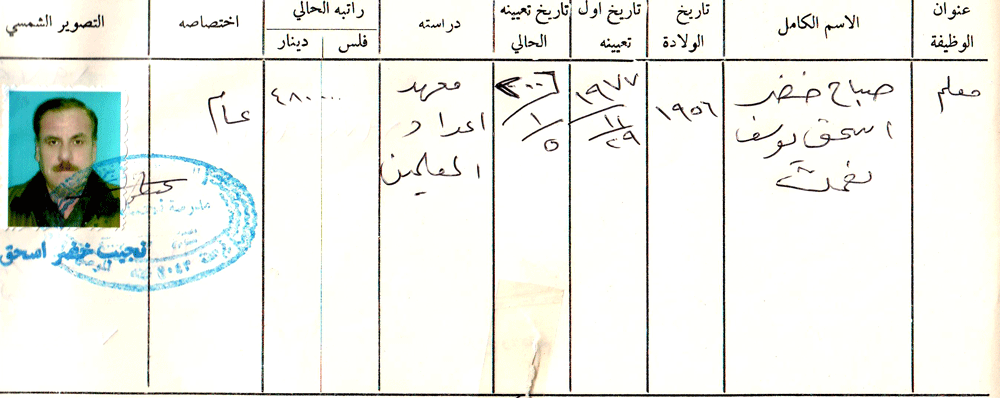 عنوان الوظيفة
الاسم الكامل
تاريخ الولادة
تاريخ اول تعيينه
تاريخ تعيينه الحالي
دراسته
راتبه الحالي
فلس
دينار
اختصاصه
التصوير الشمسي
معلم
صباح خضر
اسحق يوسف
نعمت
١٩٥٦
١٩٧٧
١٢
٢٩
٢٠٠٦
١
٥
معهد
اعداد
المعلمين
٤٨٠٠٠٠
عام
نجيب خضر اسحق